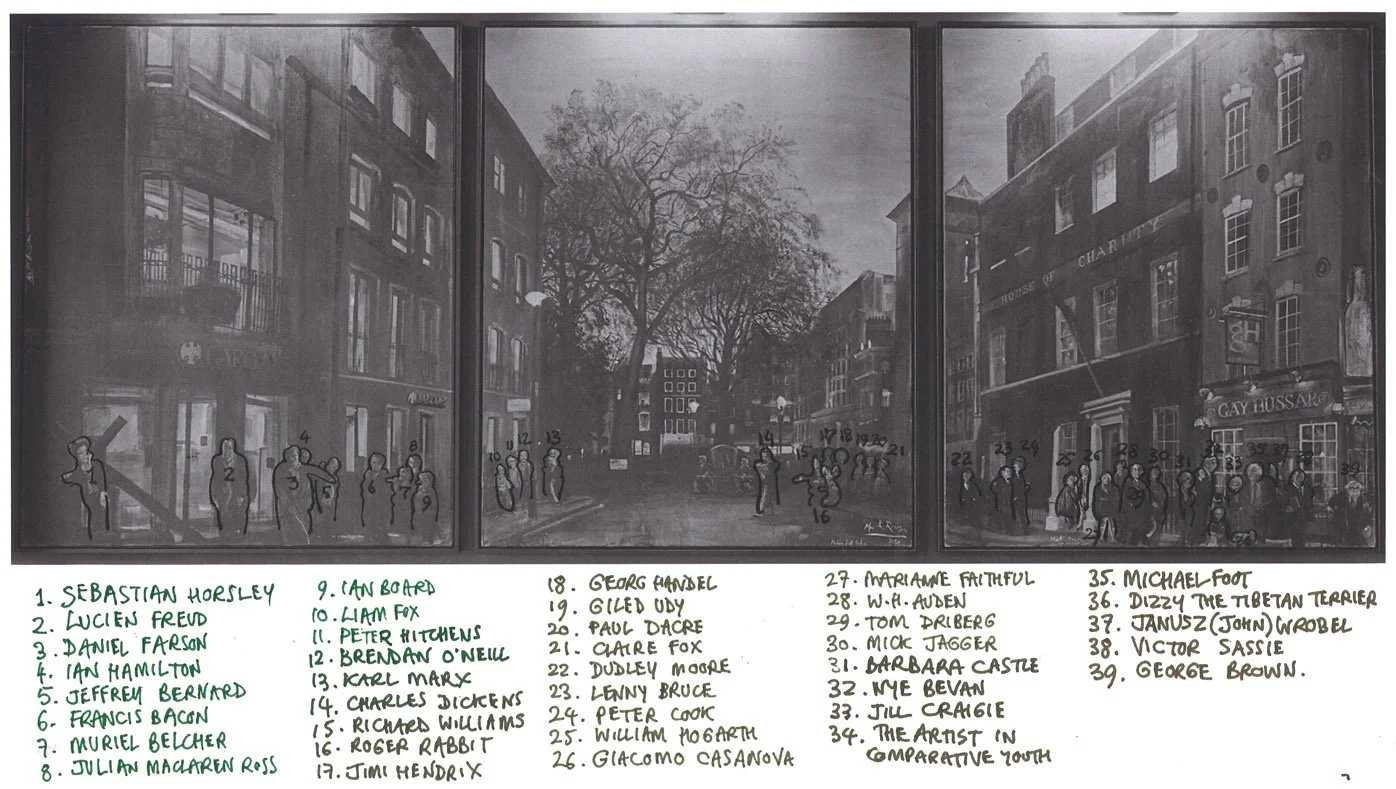 HOUSE OF CHARITY
GAY HUSSAR
GH
1. SEBASTIAN HORSLEY
2. LUCIEN FREUD
3. DANIEL FARSON
4. IAN HAMILTON
5. JEFFREY BERNARD
6. FRANCIS BACON
7. MURIEL BELCHER
8. JULIAN MACLAREN ROSS
9. IAN BOARD
10. LIAM FOX
11. PETER HITCHENS
12. BRENDAN O'NEILL
13. KARL MARX
14. CHARLES DICKENS
15. RICHARD WILLIAMS
16. ROGER RABBIT
17. JIMI HENDRIX
18. GEORG HANDEL
19. GILED UDY
20. PAUL DACRE
21. CLAIRE FOX
22. DUDLEY MOORE
23. LENNY BRUCE
24. PETER COOK
25. WILLIAM HOGARTH
26. GIACOMO CASANOVA
27. MARIANNE FAITHFUL
28. W.H. AUDEN
29. TOM DRIBERG
30. MICK JAGGER
31. BARBARA CASTLE
32. NYE BEVAN
33. JILL CRAIGIE
34. THE ARTIST IN
COMPARATIVE YOUTH
35. MICHAEL FOOT
36. DIZZY THE TIBETAN TERRIER
37. JANUSZ (JOHN) WROBEL
38. VICTOR SASSIE
39. GEORGE BROWN.